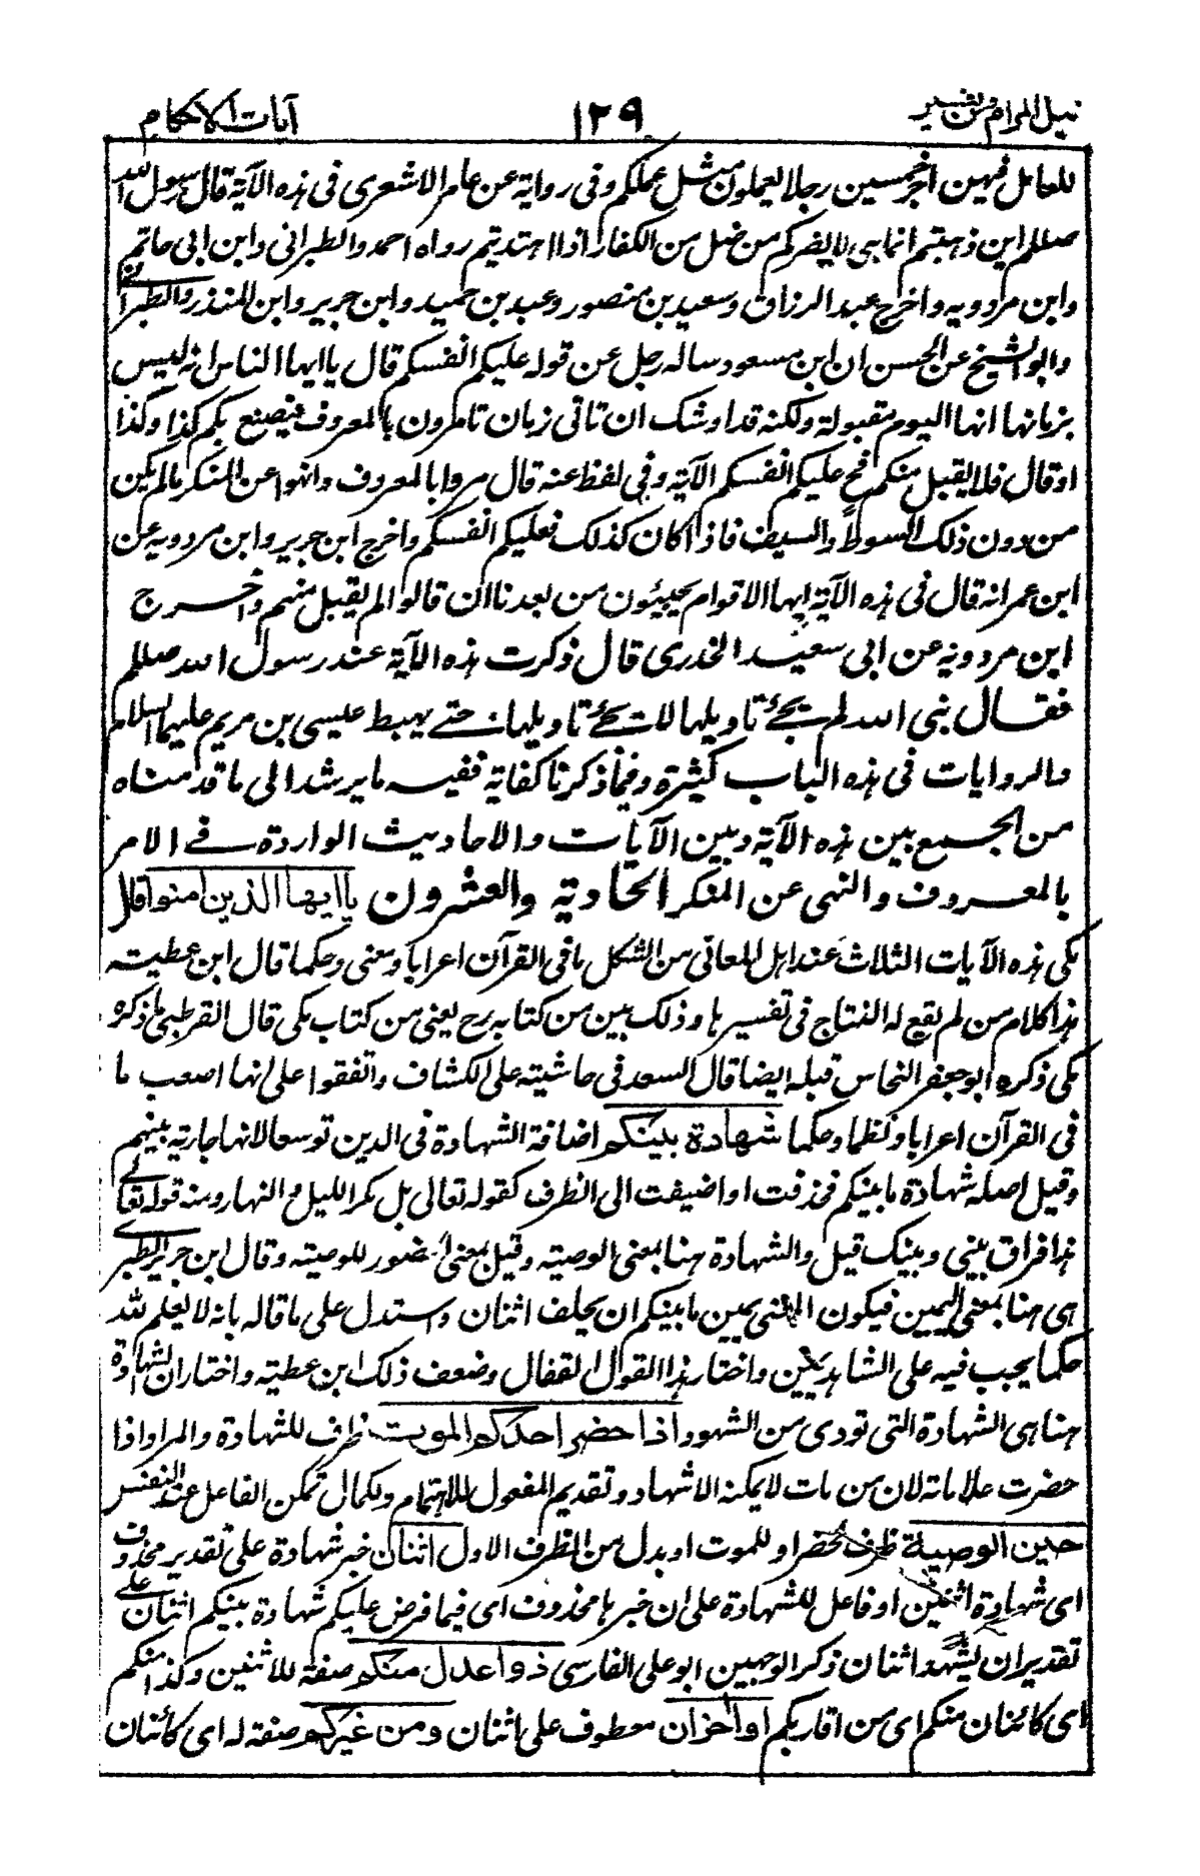 نيل المرام من تفسير ١٢٩ آيات الاحكام
للعامل فيهن اجر خمسين رجلا يعملون مثل عملكم وفى رواية عن عامر الاشعرى فى هذه الآية قال رسول الله
صللم اين ذهبتم انما هى لا يضركم من ضل من الكفار اذا اهتديتم رواه احمد والطبرانى وابن ابى حاتم
وابن مردويه واخرج عبد الرزاق وسعيد بن منصور وعبد بن حميد وابن جرير وابن المنذر والطبرانى
وابو الشيخ عن الحسن ان ابن مسعود ساله رجل عن قوله عليكم انفسكم قال يا ايها الناس انه ليس
بزمانها انها اليوم مقبولة ولكنه قد اوشك ان تاتى زمان تامرون بالمعروف فيصنع بكم كذا وكذا
او قال فلا يقبل منكم فح عليكم انفسكم الآية وفى لفظ عنه قال مروا بالمعروف وانهوا عن المنكر مالم يكن
من دون ذلك السوط والسيف فاذا كان كذلك فعليكم انفسكم واخرج ابن جرير وابن مردويه عن
ابن عمر انه قال فى هذه الآية انها الاقوام يجيئون من بعدنا ان قالوا لم يقبل منهم واخرج
ابن مردويه عن ابى سعيد الخدرى قال ذكرت هذه الآية عند رسول الله صللم
فقال نبى الله لم يجئ تاويلها لا يجئ تاويلها حتى يهبط عيسى بن مريم عليهما السلام
والروايات فى هذه الباب كثيرة وفيما ذكرنا كفاية ففيه ما يرشد الى ما قدمناه
من الجمع بين هذه الآية وبين الآيات والاحاديث الواردة فى الامر
بالمعروف والنهى عن المنكر الحادية والعشرون يا ايها الذين امنوا قال
مكى هذه الآيات الثلاث عند اهل المعانى من اشكل ما فى القرآن اعرابا ومعنى وحكما قال ابن عطية
هذا كلام من لم يقع له الثلج فى تفسيرها وذلك بين من كتابه رح يعنى من كتاب مكى قال القرطبى ما ذكره
مكى ذكره ابو جعفر النحاس قبله ايضا قال السعد فى حاشيته على الكشاف واتفقوا على انها اصعب ما
فى القرآن اعرابا ونظما وحكما شهادة بينكم اضافة الشهادة فى الدين توسعا لانها جارية بينهم
وقيل اصله شهادة ما بينكم فحذفت ما واضيفت الى الظرف كقوله تعالى بل مكر الليل والنهار ومنه قوله تعالى
هذا فراق بينى وبينك قيل والشهادة هنا بمعنى الوصية وقيل بمعنى الحضور للوصية وقال ابن جرير الطبرى
هى هنا بمعنى اليمين فيكون المعنى يمين ما بينكم ان يحلف اثنان واستدل على ما قاله بانه لا يعلم لله
حكما يجب فيه على الشاهد يمين واختار هذا القول القفال وضعف ذلك ابن عطية واختار ان الشهادة
هنا هى الشهادة التى تودى من الشهود اذا حضر احدكم الموت ظرف للشهادة والمراد اذا
حضرت علاماته لان من مات لا يمكنه الاشهاد وتقديم المفعول للاهتمام ولكمال تمكن الفاعل عند النفس
حين الوصية ظرف لحضر او للموت او بدل من الظرف الاول اثنان خبر شهادة على تقدير محذوف
اى شهادة اثنين او فاعل للشهادة على ان خبرها محذوف اى فيما فرض عليكم شهادة بينكم اثنان على
تقدير ان يشهد اثنان ذكر الوجهين ابو على الفارسى ذوا عدل منكم صفة للاثنين وكذا منكم
اى كائنان منكم اى من اقاربكم او اخران معطوف على اثنان ومن غيركم صفة له اى كائنان